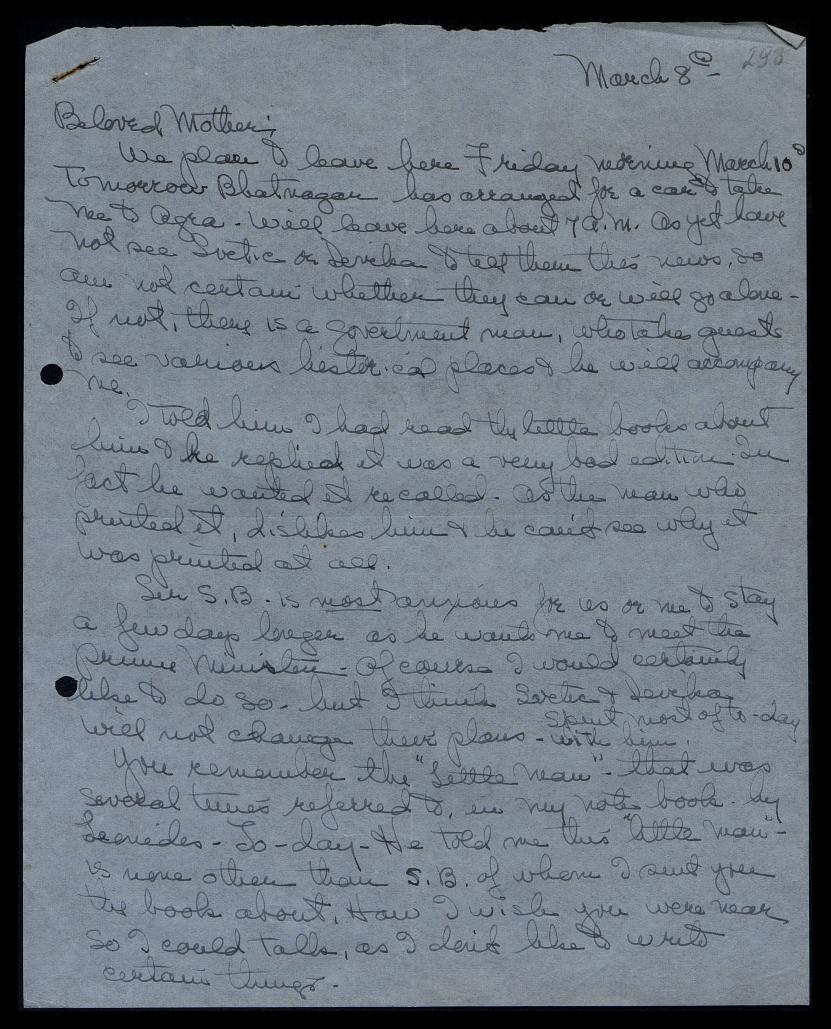 298
March 8th -
Beloved Mother;
We plan to leave here Friday morning March 10th
Tomorrow Bhatnagar has arranged for a car to take
me to Agra - Will leave here about 7 A.M. As yet have
not see Svetic or Devika to tell them this news, so
am not certain whether they can or will go alone -
If not, there is a goverlment man, who takes guests
to see various historical places & he will accompany
me.
I told him I had read the little books about
him & he replied it was a very bad edition. In
fact he wanted it recalled. As the man who
printed it, dislikes him & he can't see why it
was printed at all.
Sir S.B. is most anxious for us or me to stay
a few days longer as he wants me to meet the
prime Minister - Of course I would certainly
like to do so - but I think Svetic & Devika
will not change their plans - spent most of to-day
with him.
You remember the "Little Man" - that was
several times referred to, in my note book - by
- To-day - He told me this "little man" -
is none other than S.B. of whom I sent you
the book about. How I wish you were near
so I could talk, as I don't like to write
certain things -